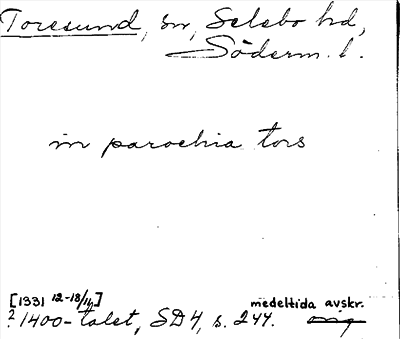 Toresund, sn, Selebo hd,
Söderm. l.
in parochia tors
[1331 12-18/4] medeltida avskr.
? 1400-talet, SD 4, s. 244. orig